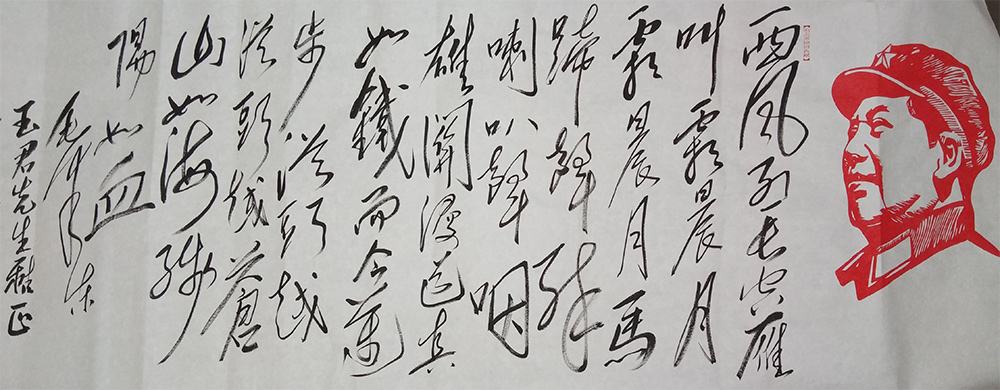 西風烈長空雁
叫霜晨月
霜晨月馬
蹄聲碎
喇叭聲咽
雄關漫道真
如鐵而今邁
步從頭越
從頭越蒼
山如海殘
陽如血
毛澤東
玉君先生正